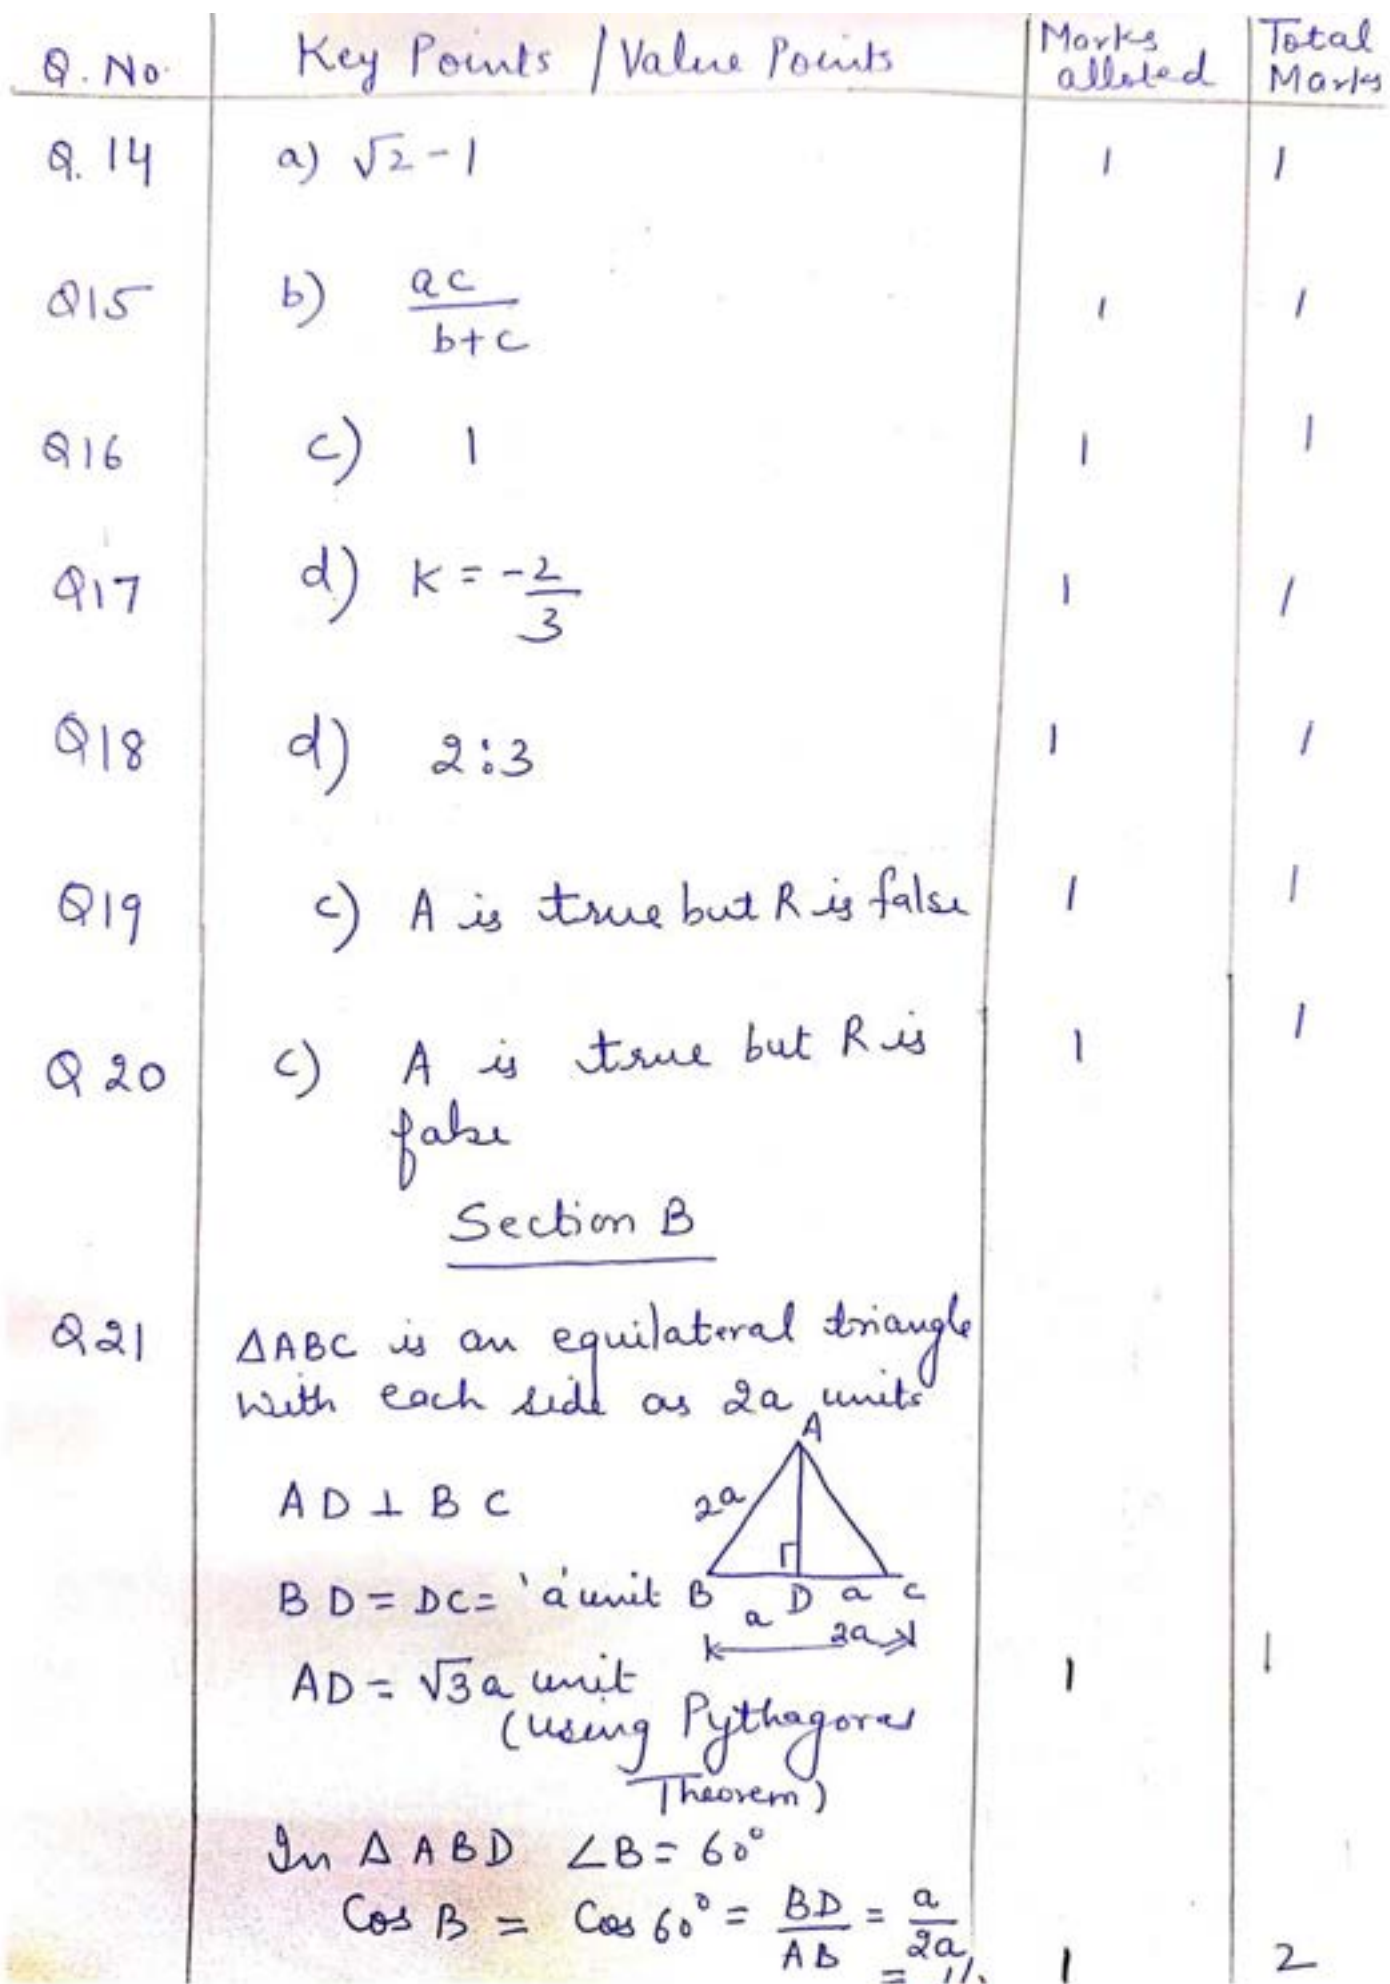 Q. No. Key Points / Value Points Marks alloted Total Marks
Q. 14 a) √2 - 1 1 1
Q15 b) ac/(b+c) 1 1
Q16 c) 1 1 1
Q17 d) K = -2/3 1 1
Q18 d) 2:3 1 1
Q19 c) A is true but R is false 1 1
Q 20 c) A is true but R is 1 1
false
Section B
Q21 ΔABC is an equilateral triangle
with each side as 2a units
A
AD ⊥ BC 2a
BD = DC = 'a' unit B D a C
a 2a
AD = √3a unit 1 1
(using Pythagoras
Theorem)
In Δ ABD ∠B = 60°
Cos B = Cos 60° = BD/AB = a/2a
= 1/ 1 2